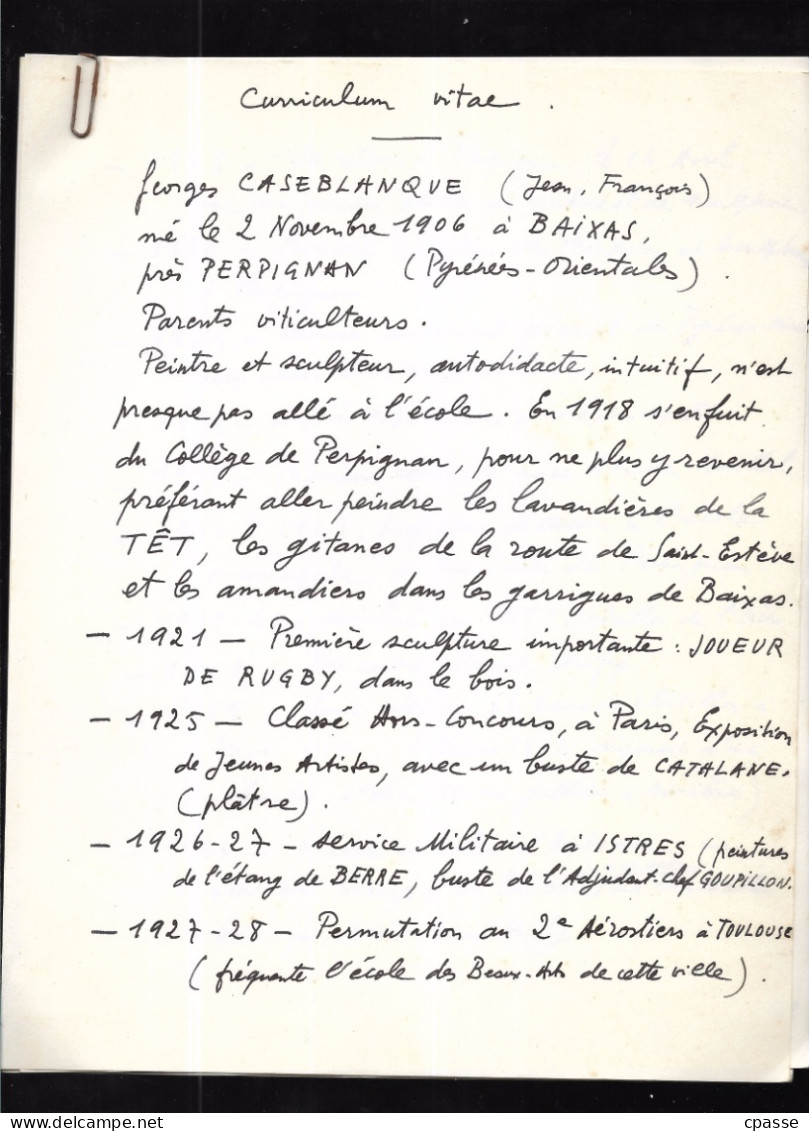 Curriculum vitae.
Georges CASEBLANQUE (Jean, François)
né le 2 Novembre 1906 à BAIXAS,
près PERPIGNAN (Pyrénées-Orientales).
Parents viticulteurs.
Peintre et sculpteur, autodidacte, intuitif, n'est
presque pas allé à l'école. En 1918 s'enfuit
du Collège de Perpignan, pour ne plus y revenir,
préférant aller peindre les lavandières de la
TÊT, les gitanes de la route de Saint-Estève
et les amandiers dans les garrigues de Baixas.
- 1921 - Première sculpture importante : JOUEUR
DE RUGBY, dans le bois.
- 1925 - Classé Hors-Concours, à Paris, Exposition
de Jeunes Artistes, avec un buste de CATALANE.
(plâtre).
- 1926-27 - service Militaire à ISTRES (peintures
de l'étang de BERRE, buste de l'Adjudant-chef GOUPILLON.
- 1927-28 - Permutation au 2e Aérostiers à TOULOUSE
(fréquente l'école des Beaux-Arts de cette ville).
cpasse